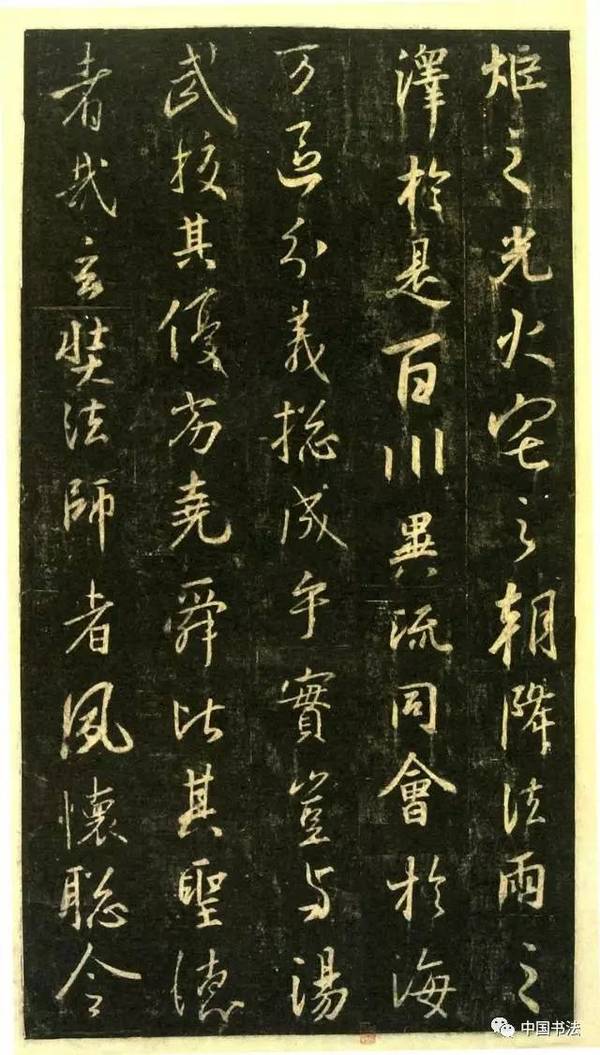 炬之光火宅之朝降法雨之
澤於是百川異流同會於海
万區分義揔成乎實豈与湯
武挍其優劣堯舜比其聖德
者哉玄奘法師者夙懷聡令
中国书法